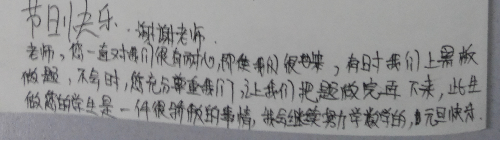 节日快乐. 谢谢老师.
老师,您一直对我们很有耐心,即使我们很吵,有时我们上黑板
做题,不会时,您充分尊重我们,让我们把题做完再下来,此生
做您的学生是一件很骄傲的事情,我会继续努力学数学的,元旦快乐.